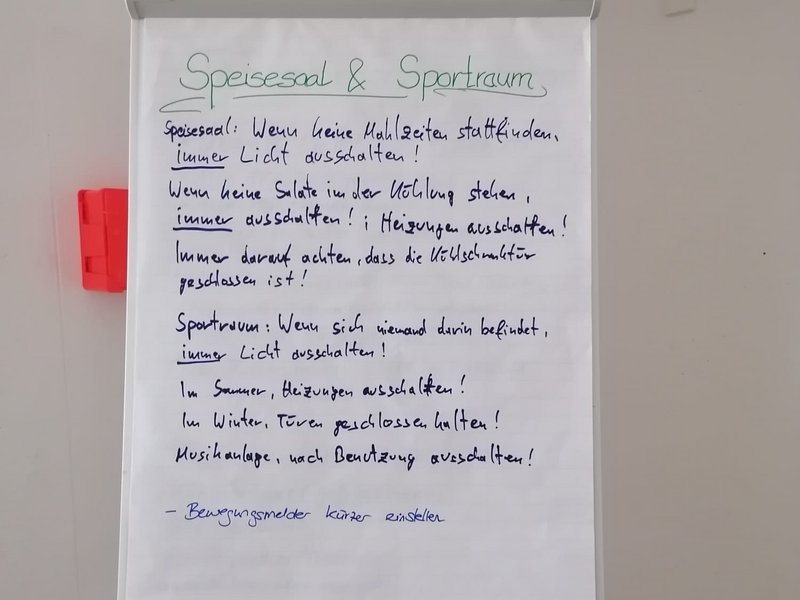 Speisesaal & Sportraum
Speisesaal: Wenn keine Mahlzeiten stattfinden,
immer Licht ausschalten!
Wenn keine Salate in der Kühlung stehen,
immer ausschalten! ; Heizungen ausschalten!
Immer darauf achten, dass die Kühlschranktür
geschlossen ist!
Sportraum: Wenn sich niemand darin befindet,
immer Licht ausschalten!
Im Sommer, Heizungen ausschalten!
Im Winter, Türen geschlossen halten!
Musikanlage, nach Benutzung ausschalten!
- Bewegungsmelder kürzer einstellen